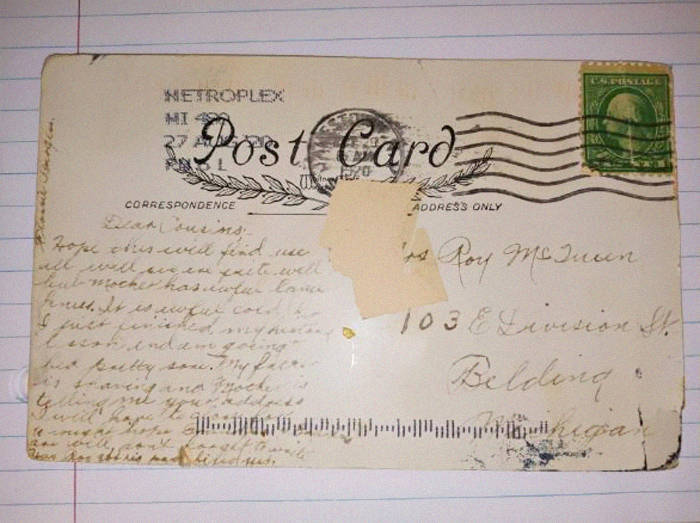 METROPLEX
MI 480
27 AUG '20
PM 3 L
JAMESTOWN
1920
U.S. POSTAGE
Post Card
CORRESPONDENCE
ADDRESS ONLY
Dear Cousins:
Hope this will find use
all well we are quite well
but Mother has awful lame
knees. It is awful cold,
I just finished my
lesson and am going
bed pretty soon. My father
is shaving and Mother is
telling me your address
I will have to
hope
are well don't forget to write
Roy McQueen
103 E Division St.
Belding
Michigan